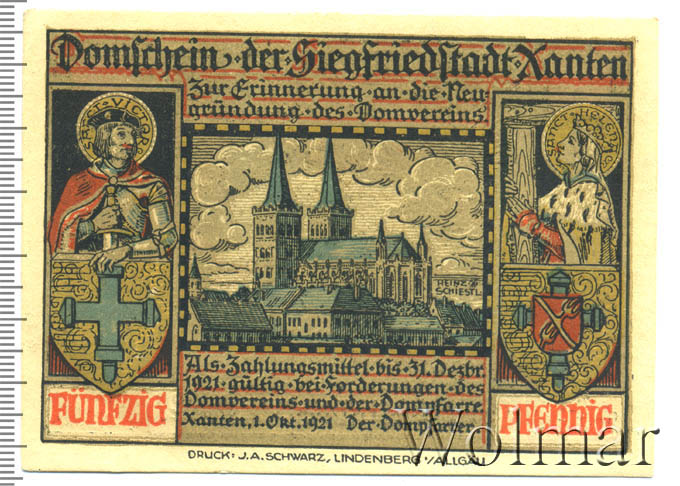 Domschein · der · Siegfriedstadt · Xanten
Zur Erinnerung · an · die · Neu
gründung · des · Domvereins
SANKT VICTOR
SANKTA HELENA
HEINZ
SCHIESTL
Als · Zahlungsmittel · bis · 31. Dezbr
1921 · gültig · bei · Forderungen · des
Domvereins · und · der · Dompfarre
Xanten, 1. Okt. 1921 Der Dompfarrer
FÜNFZIG
PFENNIG
DRUCK: J. A. SCHWARZ, LINDENBERG I/ALLGÄU
Wolmar